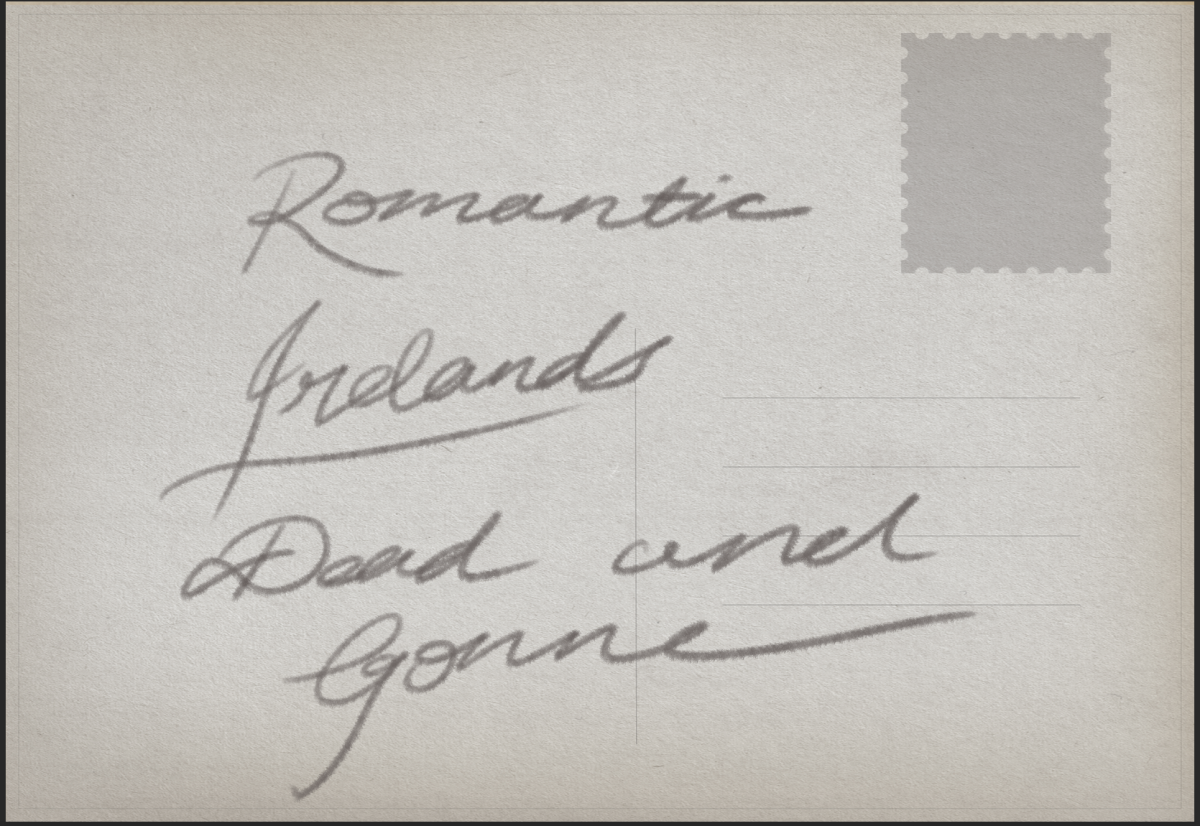 Romantic
Irelands
Dead and
Gonne